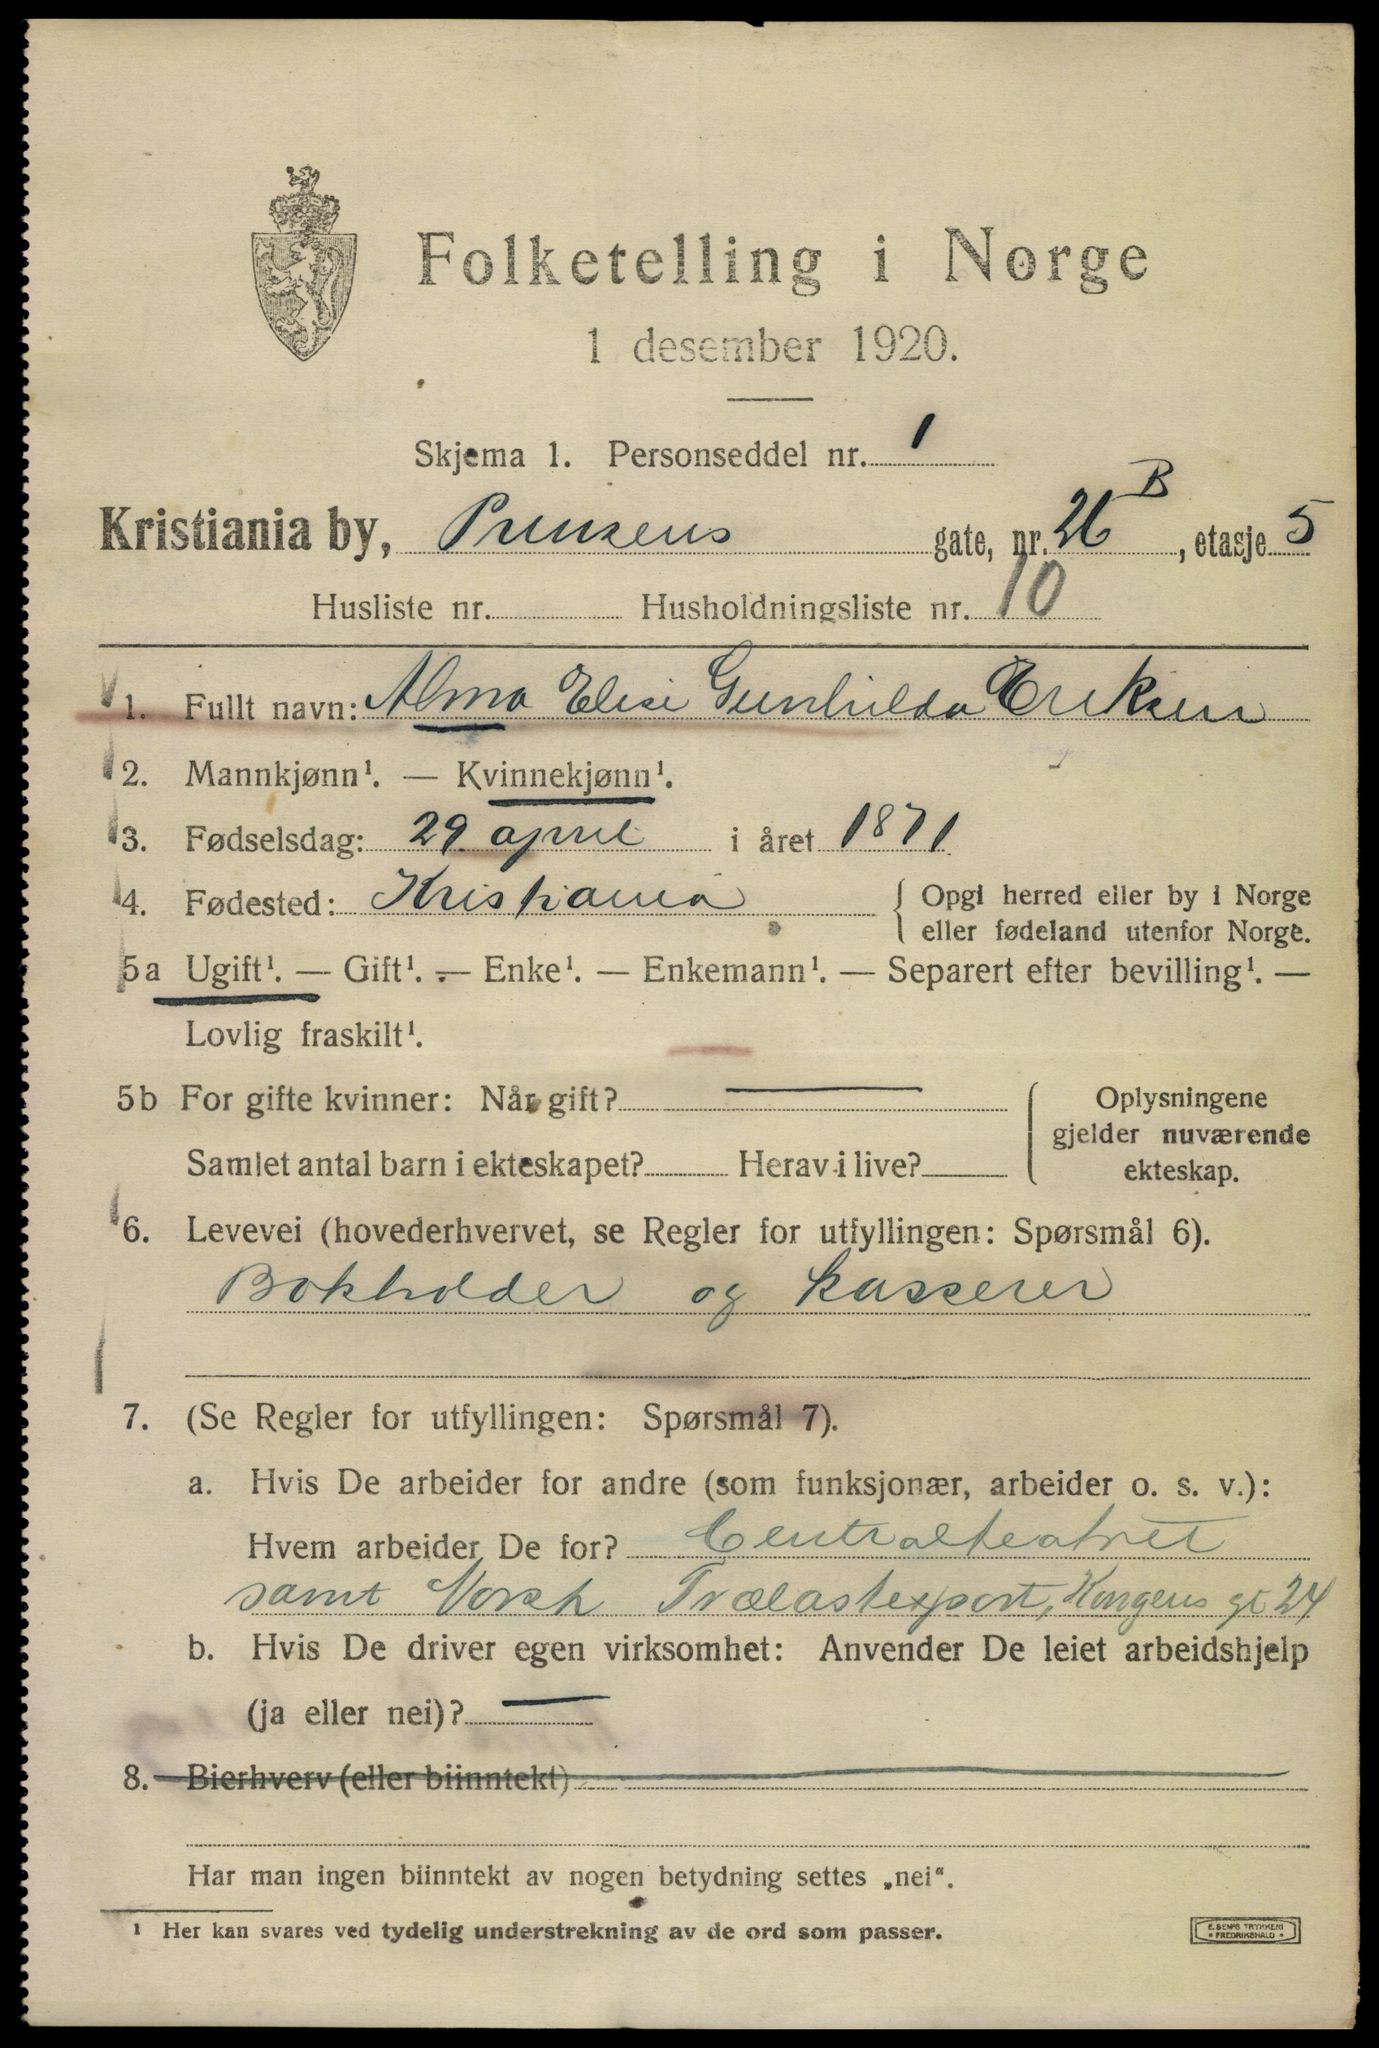 Folketelling i Norge
1 desember 1920.
Skjema 1. Personseddel nr. 1
Kristiania by, Prinsens gate, nr. 26 B, etasje 5
Husliste nr. Husholdningsliste nr. 10
1. Fullt navn: Alma Elise Gunhilda Eriksen
2. Mannkjønn¹. — Kvinnekjønn¹.
3. Fødselsdag: 29. april i året 1871.
4. Fødested: Kristiania { Opgi herred eller by i Norge
eller fødeland utenfor Norge.
5a Ugift¹. — Gift¹. — Enke¹. — Enkemann¹. — Separert efter bevilling¹. —
Lovlig fraskilt¹.
5b For gifte kvinner: Når gift? — Oplysningene
gjelder nuværende
Samlet antal barn i ekteskapet? Herav i live? ekteskap.
6. Levevei (hovederhvervet, se Regler for utfyllingen: Spørsmål 6).
Bokholder og kasserer
7. (Se Regler for utfyllingen: Spørsmål 7).
a. Hvis De arbeider for andre (som funksjonær, arbeider o. s. v.):
Hvem arbeider De for? Centralteatret
samt Norsk Trælastexport, Kongens gt 24
b. Hvis De driver egen virksomhet: Anvender De leiet arbeidshjelp
(ja eller nei)? —
8. Bierhverv (eller biinntekt)
Har man ingen biinntekt av nogen betydning settes „nei“.
¹ Her kan svares ved tydelig understrekning av de ord som passer.
E. SEMS TRYKKERI
FREDRIKSHALD